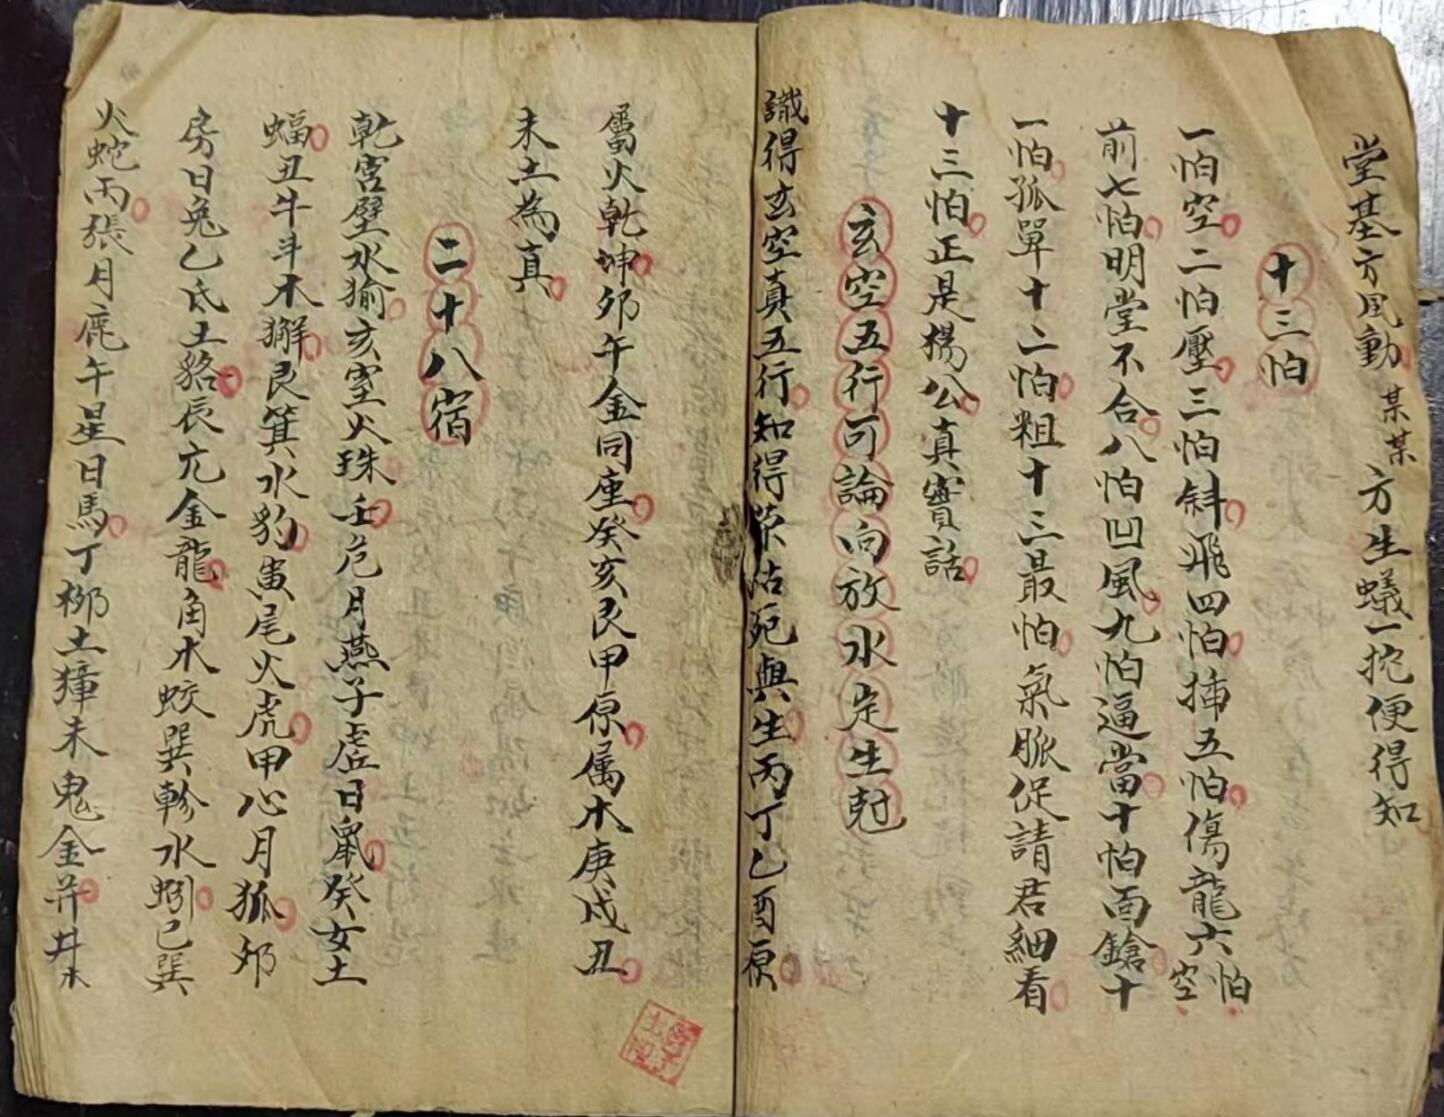 堂基方風動某某方生蟻一挖便得知
十三怕
一怕空二怕壓三怕斜飛四怕揷五怕傷龍六怕空
前七怕明堂不合八怕凹風九怕逼當十怕面鎗十
一怕孤單十二怕粗十三最怕氣脈促請君細看
十三怕正是楊公真實話
玄空五行可論向放水定生尅
識得玄空真五行知得荣枯死與生丙丁乙酉原
屬火乾坤卯午金同座癸亥艮甲原属木庚戌丑
未土為真
二十八宿
乾宮壁水㺄亥室火珠壬危月燕子虛日鼠癸女土
蝠丑牛斗木獬艮箕水豹寅尾火虎甲心月狐卯
房日兔乙氐土貉辰亢金龍角木蛟巽軫水蚓巳巽
火蛇丙張月鹿午星日馬丁栁土獐未鬼金羊井木